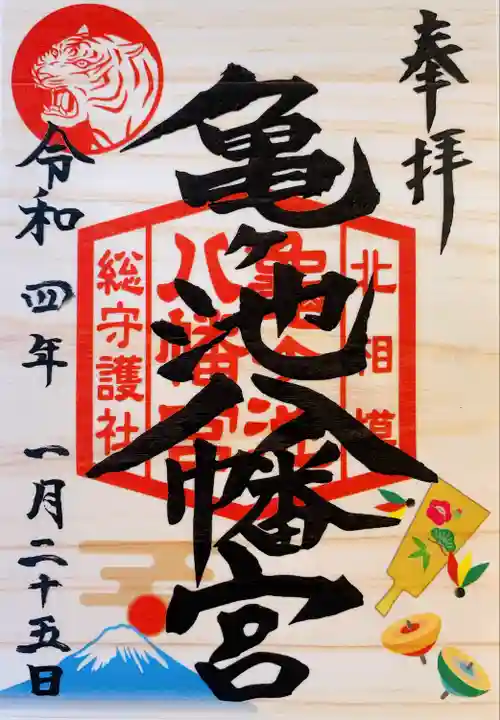 奉拝
亀ヶ池八幡宮
北相模
亀ヶ池
八幡宮
総守護社
令和四年一月二十五日